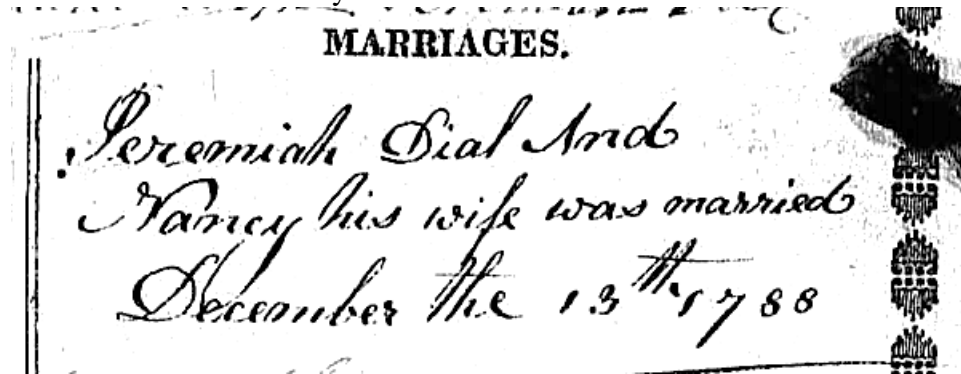 MARRIAGES.
Jeremiah Dial And
Nancy his wife was married
December the 13th 1788